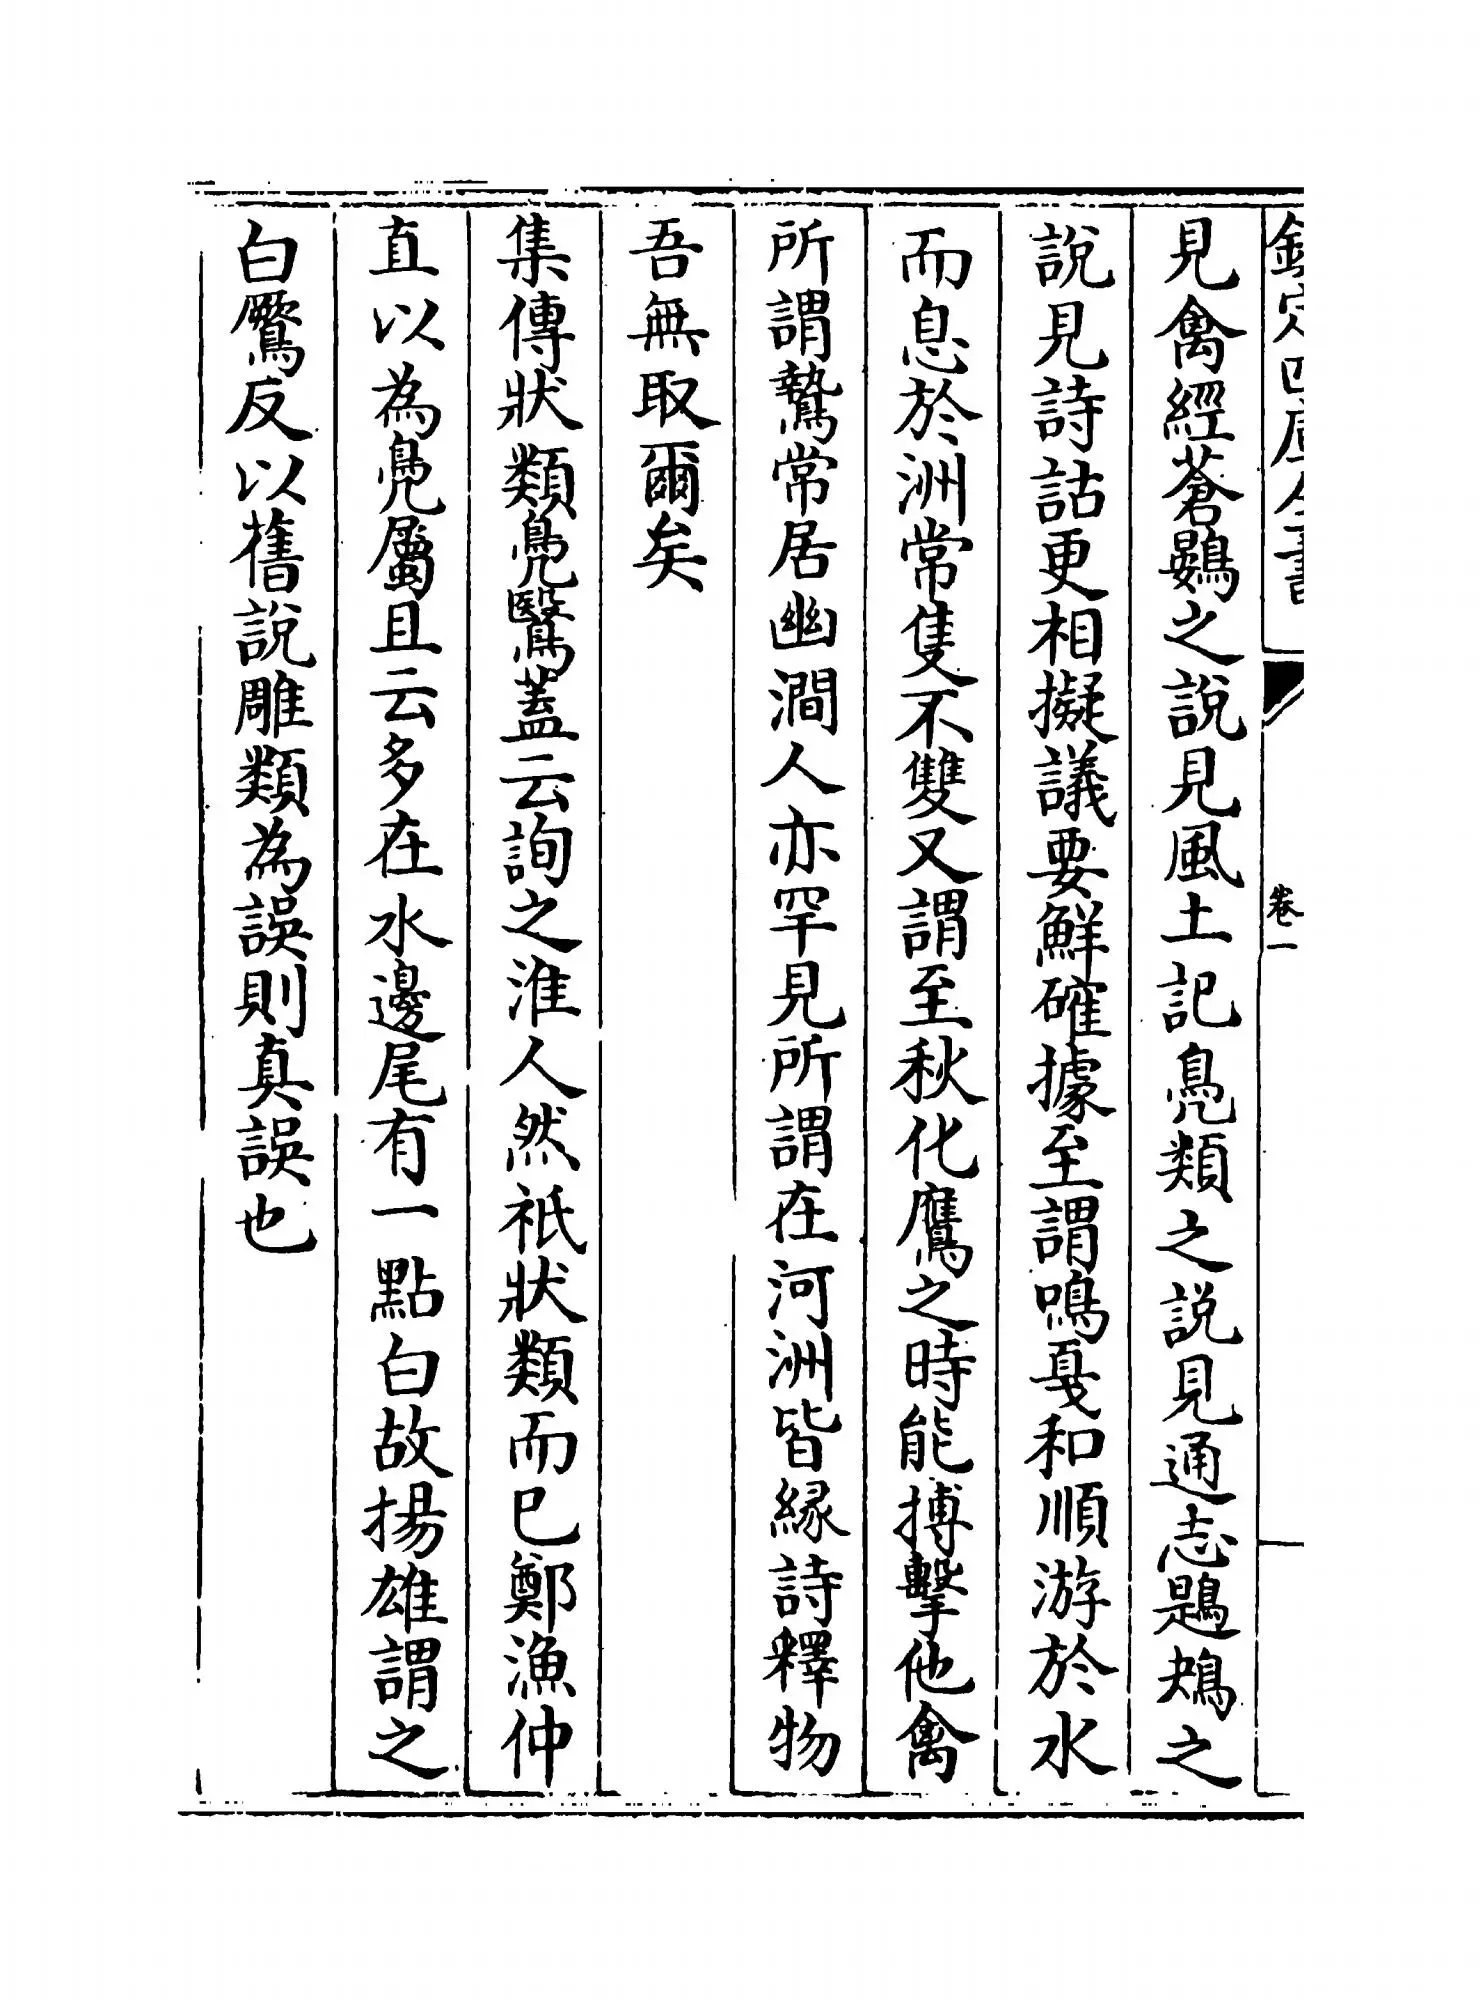 欽定四庫全書
卷一
見禽經蒼鷃之說見風土記鳧類之説見通志鶗鴂之
說見詩詁更相擬議要鮮確據至謂鳴戞和順游於水
而息於洲常隻不雙又謂至秋化鷹之時能搏擊他禽
所謂鷙常居幽澗人亦罕見所謂在河洲皆縁詩釋物
吾無取爾矣
集傳狀類鳧鷖蓋云詢之淮人然祇狀類而已鄭漁仲
直以為鳧屬且云多在水邊尾有一點白故揚雄謂之
白鷢反以舊說雕類為誤則真誤也